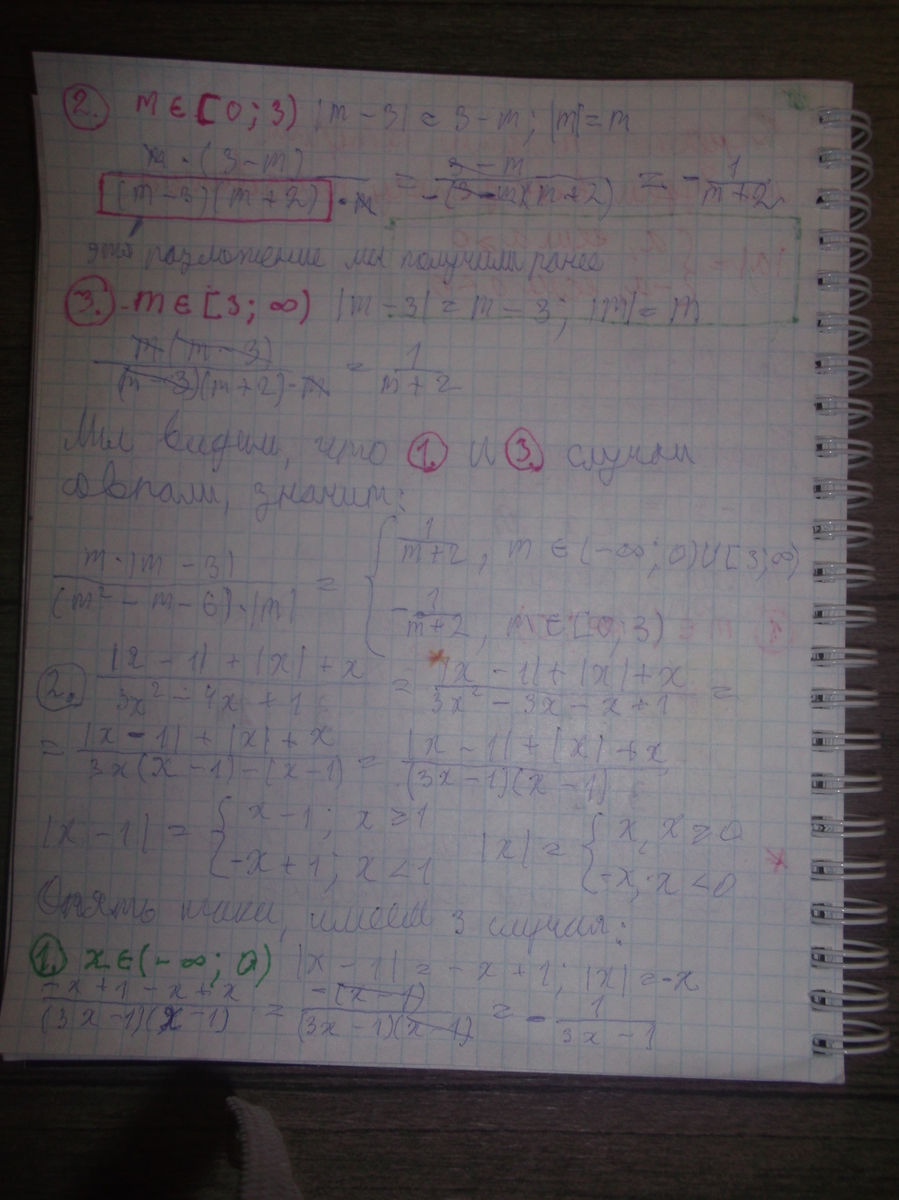 2. m ∈ [0; 3) |m - 3| = 3 - m; |m| = m
m · (3 - m) / (m - 3)(m + 2) · m = 3 - m / -(3 - m)(m + 2) = - 1 / m + 2
это разложение мы получили ранее
3. m ∈ [3; ∞) |m - 3| = m - 3; |m| = m
m(m - 3) / (m - 3)(m + 2) · m = 1 / m + 2
Мы видим, что 1. и 3. случаи
совпали, значит:
m · |m - 3| / (m² - m - 6) · |m| = { 1 / m + 2, m ∈ (-∞; 0) ∪ [3; ∞)
- 1 / m + 2, m ∈ [0; 3)
2. |x - 1| + |x| + x / 3x² - 4x + 1 = * |x - 1| + |x| + x / 3x² - 3x - x + 1 =
= |x - 1| + |x| + x / 3x(x - 1) - (x - 1) = |x - 1| + |x| + x / (3x - 1)(x - 1)
|x - 1| = { x - 1; x ≥ 1 |x| = { x, x ≥ 0
-x + 1; x < 1 -x, x < 0 *
Опять таки, имеем 3 случая:
1. x ∈ (-∞; 0) |x - 1| = -x + 1; |x| = -x
-x + 1 - x + x / (3x - 1)(x - 1) = -(x - 1) / (3x - 1)(x - 1) = - 1 / 3x - 1